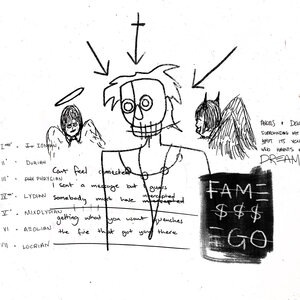 ANGELS + DE
SURROUNDING MY
WHO WANTS A
DREAM
I
II - DORIAN
III - PHRYGIAN
IV - LYDIAN
V - MIXOLYDIAN
VI - AEOLIAN
VII - LOCRIAN
Can't feel connected
I sent a message but I guess
Somebody must have
getting what you want quenches
the fire that got you there
FAME
$$$
EGO